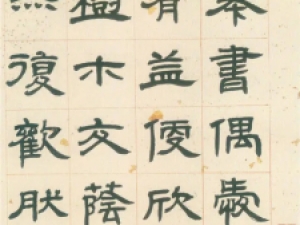 書偶愛
有益便欣
樹木交蔭
復歡肰